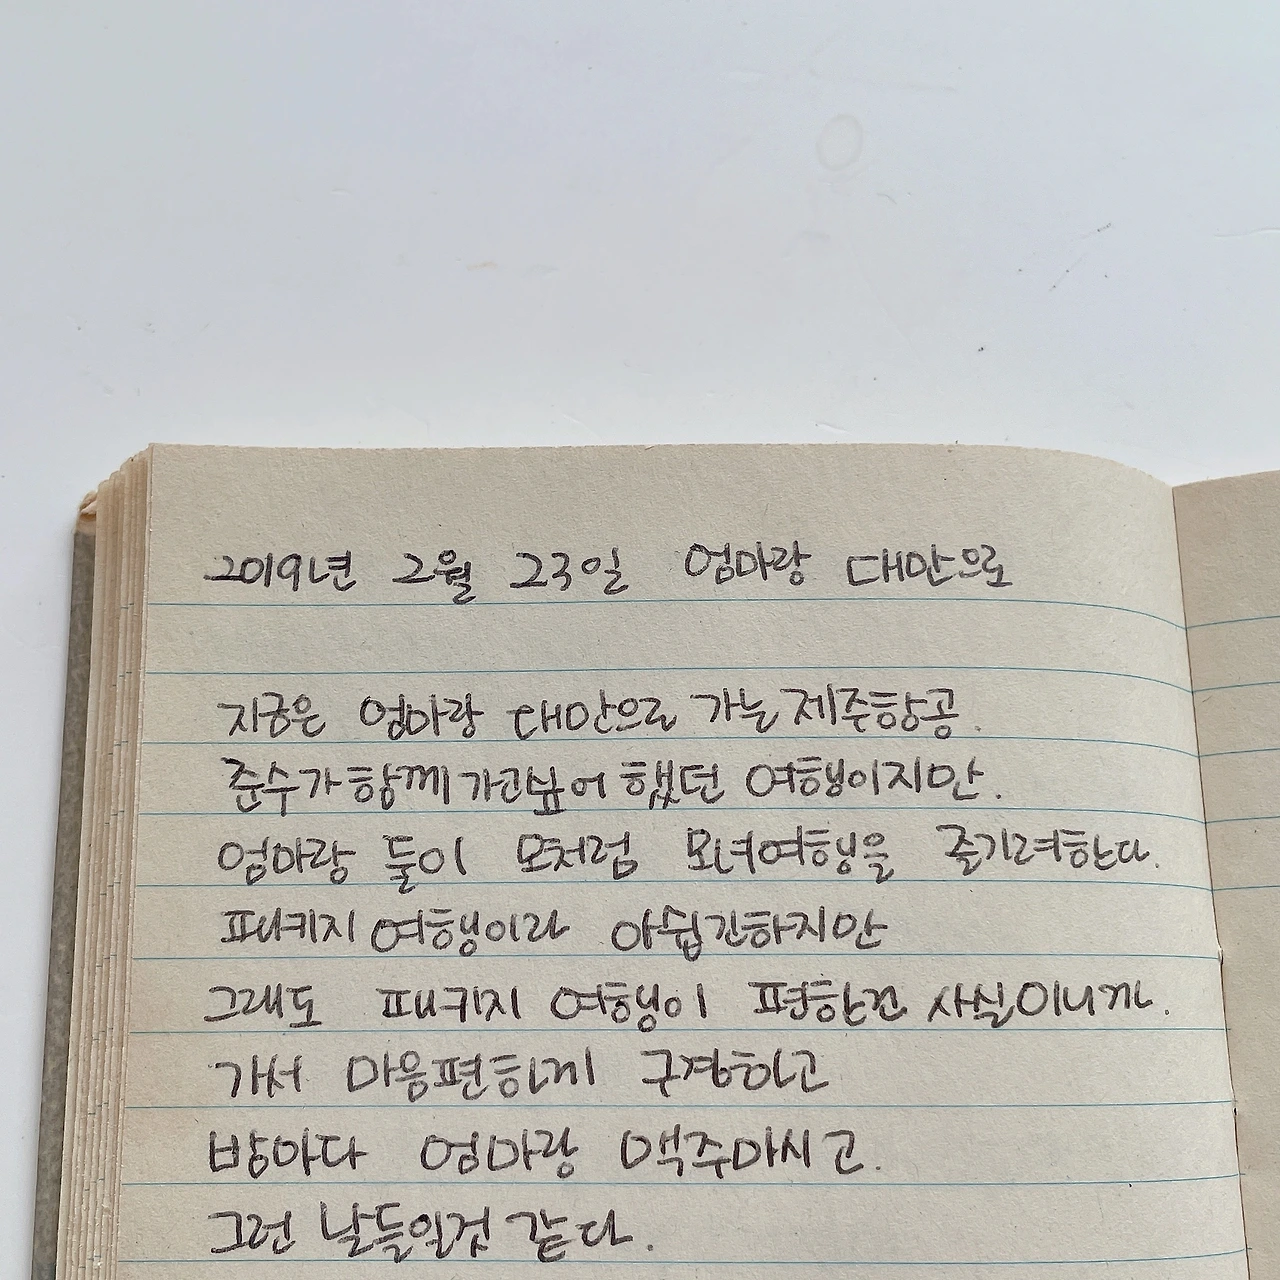 2019년 2월 23일 엄마랑 대만으로
지금은 엄마랑 대만으로 가는 제주항공.
준수가 함께 가고싶어 했던 여행이지만.
엄마랑 둘이 모처럼 모녀여행을 즐기려한다.
패키지 여행이라 아쉽긴하지만
그래도 패키지 여행이 편한건 사실이니까.
가서 마음편하게 구경하고
밤마다 엄마랑 맥주마시고.
그런 날들일것 같다.